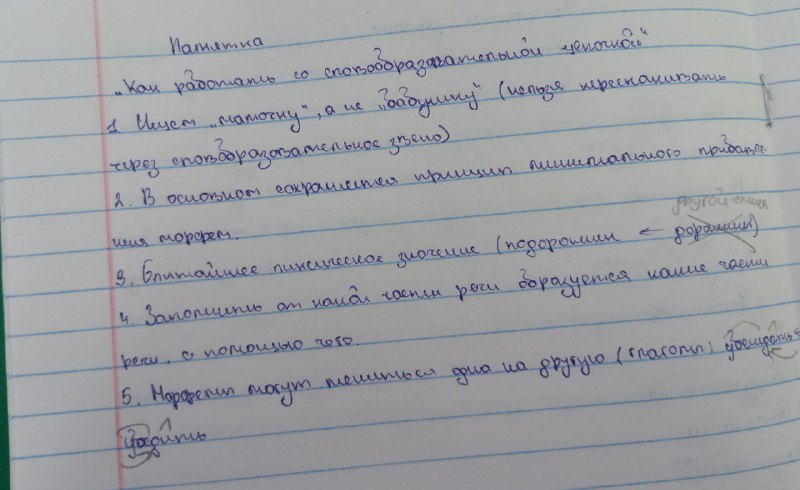 Памятка
„Как работать со словообразовательной цепочкой"
1 Ищем „мамочку", а не „бабушку" (нельзя перескакивать
через словообразовательное звено)
2. В основном сохраняется принцип минимального прибавле-
ния морфем.
другой
3. Ближайшее лексическое значение (подорожник ← дорожник)
4. Запомнить от какой части речи образуется какие части
речи, с помощью чего.
5. Морфемы могут меняться одна на другую (глаголы: